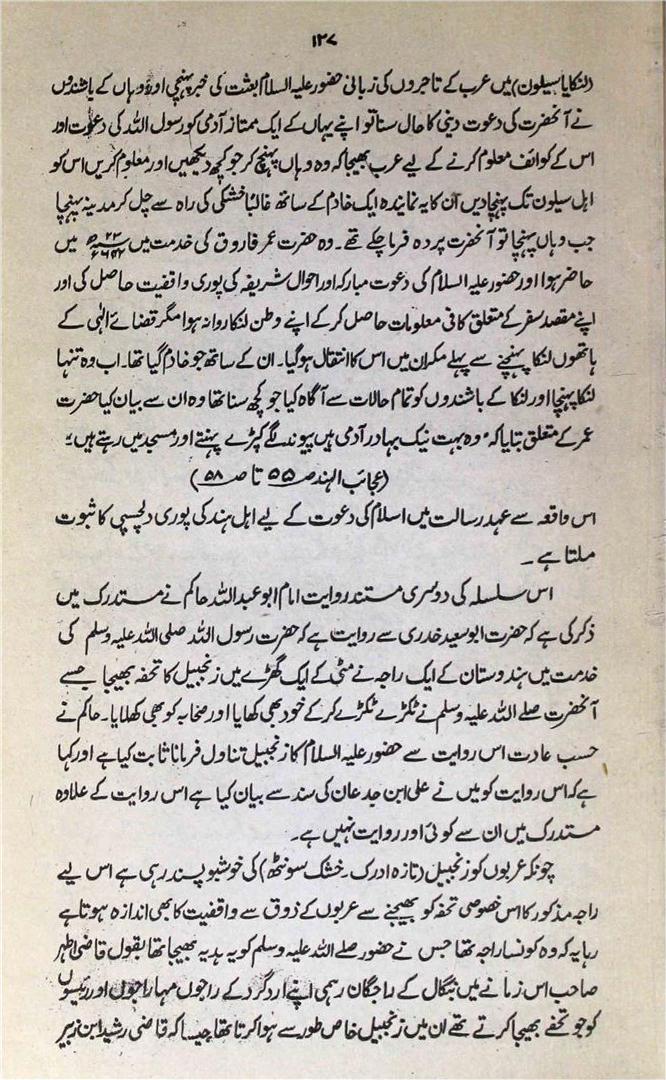 ۱۲۷
(لنکا یا سیلون) میں عرب کے تاجروں کی زبانی حضور علیہ السلام بعثت کی خبر پہنچی اور وہاں کے باشندوں
نے آنحضرت کی دعوت دینی کا حال سنا تو اپنے یہاں کے ایک ممتاز آدمی کو رسول اللہ کی دعوت اور
اس کے کوائف معلوم کرنے کے لیے عرب بھیجا کہ وہ وہاں پہنچ کر جو کچھ دیکھیں اور معلوم کریں اس کو
اہل سیلون تک پہنچا دیں ان کا یہ نمایندہ ایک خادم کے ساتھ غالبًا خشکی کی راہ سے چل کر مدینہ پہنچا
جب وہاں پہنچا تو آنحضرت پردہ فرما چکے تھے۔ وہ حضرت عمر فاروق کی خدمت میں میں
حاضر ہوا اور حضور علیہ السلام کی دعوت مبارکہ اور احوال شریفہ کی پوری واقفیت حاصل کی اور
اپنے مقصد سفر کے متعلق کافی معلومات حاصل کر کے اپنے وطن لنکا روانہ ہوا مگر قضائے الٰہی کے
ہاتھوں لنکا پہنچنے سے پہلے مکران میں اس کا انتقال ہو گیا۔ ان کے ساتھ جو خادم گیا تھا۔ اب وہ تنہا
لنکا پہنچا اور لنکا کے باشندوں کو تمام حالات سے آگاہ کیا جو کچھ سنا تھا وہ ان سے بیان کیا حضرت
عمر کے متعلق بتایا کہ "وہ بہت نیک بہادر آدمی ہیں پیوند لگے کپڑے پہنتے اور مسجد میں رہتے ہیں"
(عجائب الہند ص ۵۵ تا ص ۵۸)
اس واقعہ سے عہد رسالت میں اسلام کی دعوت کے لیے اہل ہند کی پوری دلچسپی کا ثبوت
ملتا ہے۔
اس سلسلہ کی دوسری مستند روایت امام ابو عبد اللہ حاکم نے مستدرک میں
ذکر کی ہے کہ حضرت ابو سعید خدری سے روایت ہے کہ حضرت رسول اللہ صلی اللہ علیہ وسلم کی
خدمت میں ہندوستان کے ایک راجہ نے مٹی کے ایک گھڑے میں زنجبیل کا تحفہ بھیجا جسے
آنحضرت صلے اللہ علیہ وسلم نے ٹکڑے ٹکڑے کر کے خود بھی کھایا اور صحابہ کو بھی کھلایا۔ حاکم نے
حسب عادت اس روایت سے حضور علیہ السلام کا زنجبیل تناول فرمانا ثابت کیا ہے اور کہا
ہے کہ اس روایت کو میں نے علی ابن جدعان کی سند سے بیان کیا ہے اس روایت کے علاوہ
مستدرک میں ان سے کوئی اور روایت نہیں ہے۔
چونکہ عربوں کو زنجبیل (تازہ ادرک۔ خشک سونٹھ) کی خوشبو پسند رہی ہے اس لیے
راجہ مذکور کا اس خصوصی تحفہ کو بھیجنے سے عربوں کے ذوق سے واقفیت کا بھی اندازہ ہوتا ہے
رہا یہ کہ وہ کونسا راجہ تھا جس نے حضور صلے اللہ علیہ وسلم کو یہ ہدیہ بھیجا تھا بقول قاضی اطہر
صاحب اس زمانے میں بنگال کے راجگان رہمی اپنے اردگرد کے راجوں مہاراجوں اور رئیسوں
کو جو تحفے بھیجا کرتے تھے ان میں زنجبیل خاص طور سے ہوا کرتا تھا جیسا کہ قاضی رشید ابن زبیر